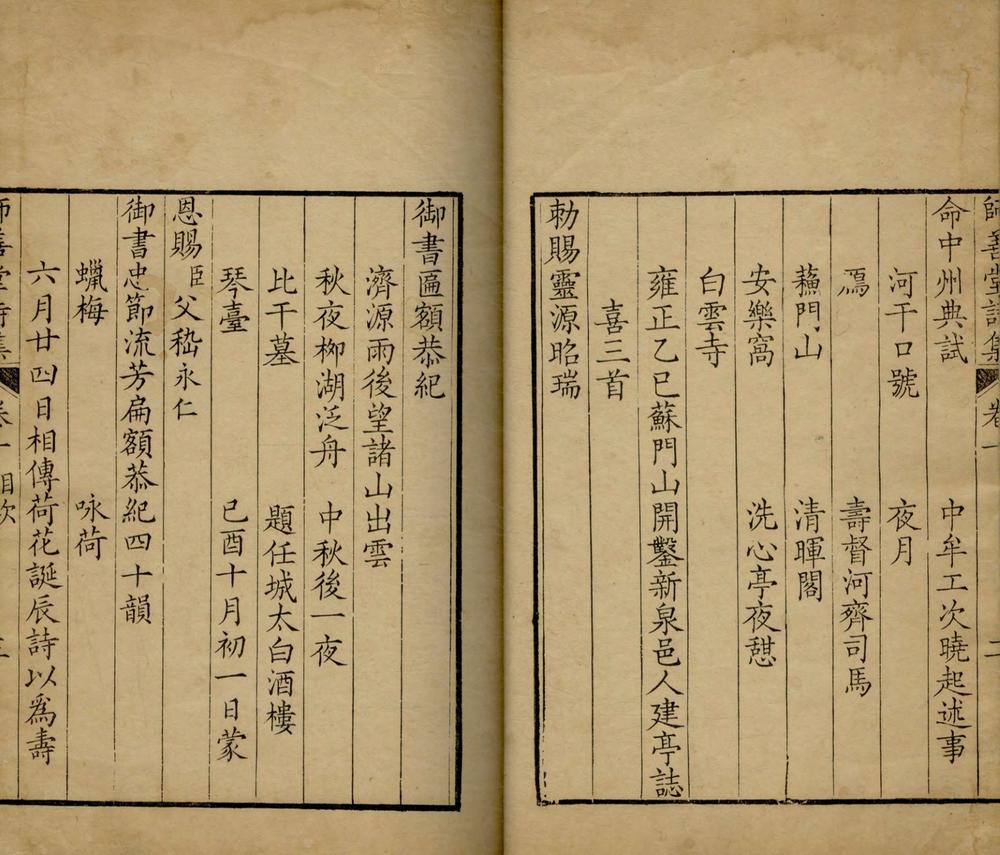 師善堂詩集 卷一 二
命中州典試 中牟工次曉起述事
河干口號 夜月
鴈 壽督河齊司馬
蘓門山 清暉閣
安樂窩 洗心亭夜憇
白雲寺
雍正乙巳蘇門山開鑿新泉邑人建亭誌
喜三首
勅賜靈源昭瑞
御書匾額恭紀
濟源雨後望諸山出雲
秋夜柳湖泛舟 中秋後一夜
比干墓 題任城太白酒樓
琴臺 己酉十月初一日蒙
恩賜臣父嵇永仁
御書忠節流芳扁額恭紀四十韻
蠟梅 咏荷
六月廿四日相傳荷花誕辰詩以爲壽
師善堂詩集 卷一 目次 三